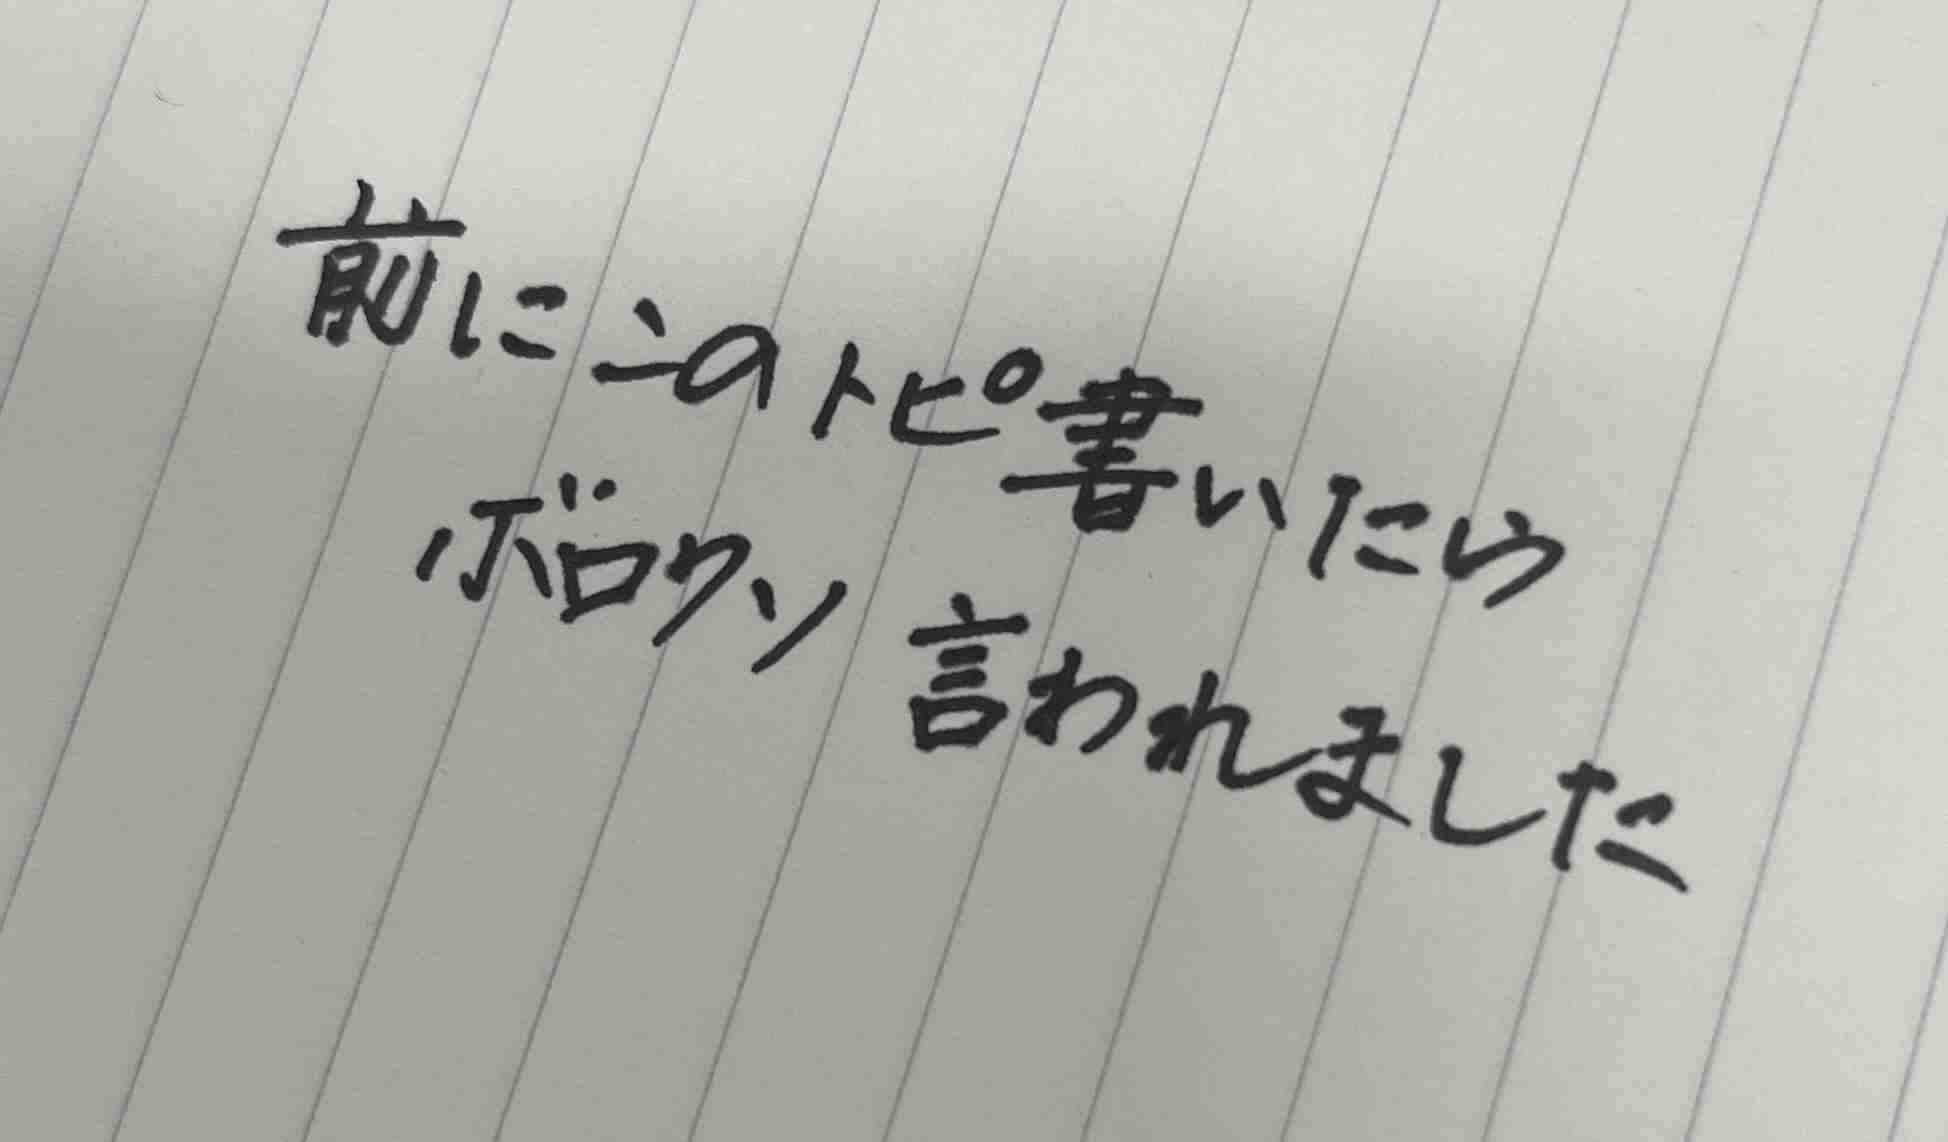 前にこのトピ書いたら
ボロクソ言われました